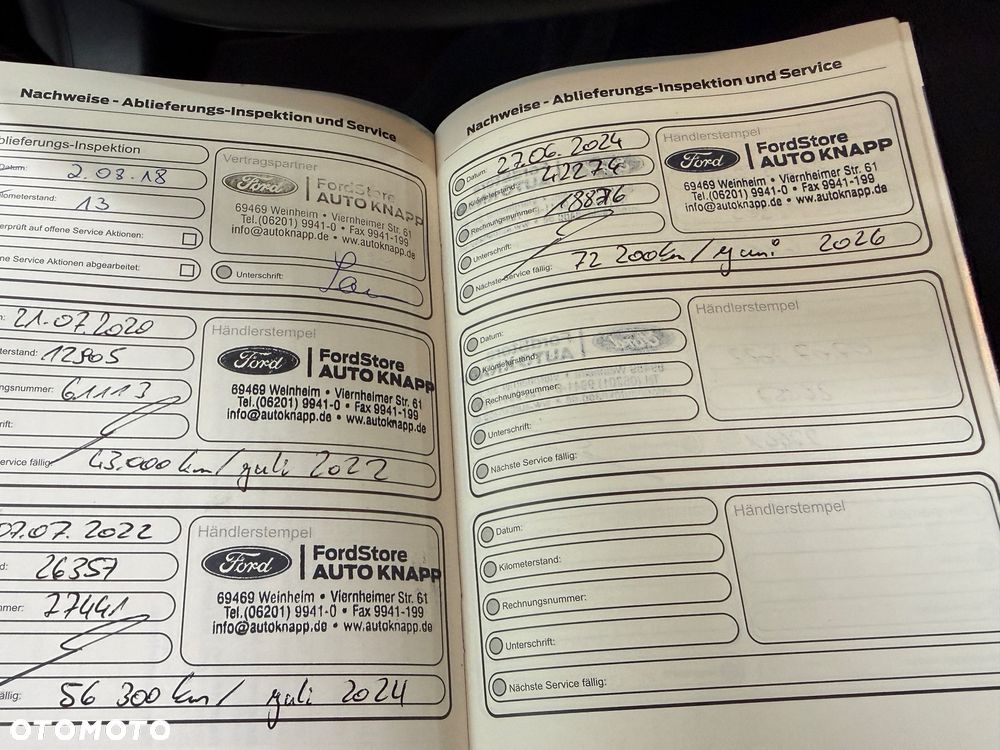 Nachweise - Ablieferungs-Inspektion und Service
blieferungs-Inspektion
Datum: 2.08.18
ilometerstand: 13
erprüft auf offene Service Aktionen:
ne Service Aktionen abgearbeitet:
Vertragspartner
Ford
FordStore
AUTO KNAPP
69469 Weinheim • Viernheimer Str. 61
Tel.(06201) 9941-0 • Fax 9941-199
info@autoknapp.de • www.autoknapp.de
Unterschrift:
m: 21.07.2020
terstand: 12905
ngsnummer: 61113
rift:
ervice fällig: 43.000 km/ juli 2022
Händlerstempel
Ford
FordStore
AUTO KNAPP
69469 Weinheim • Viernheimer Str. 61
Tel.(06201) 9941-0 • Fax 9941-199
info@autoknapp.de • www.autoknapp.de
07.07.2022
d: 26357
mmer: 77441
ällig: 56 300 km/ juli 2024
Händlerstempel
Ford
FordStore
AUTO KNAPP
69469 Weinheim • Viernheimer Str. 61
Tel.(06201) 9941-0 • Fax 9941-199
info@autoknapp.de • www.autoknapp.de
Nachweise - Ablieferungs-Inspektion und Service
Datum: 27.06.2024
Kilometerstand: 42274
Rechnungsnummer: 18876
Unterschrift:
Nächste Service fällig: 72 200km/ juni 2026
Händlerstempel
Ford
FordStore
AUTO KNAPP
69469 Weinheim • Viernheimer Str. 61
Tel.(06201) 9941-0 • Fax 9941-199
info@autoknapp.de • www.autoknapp.de
Datum:
Kilometerstand:
Rechnungsnummer:
Unterschrift:
Nächste Service fällig:
Händlerstempel
Datum:
Kilometerstand:
Rechnungsnummer:
Unterschrift:
Nächste Service fällig:
Händlerstempel
OTOMOTO